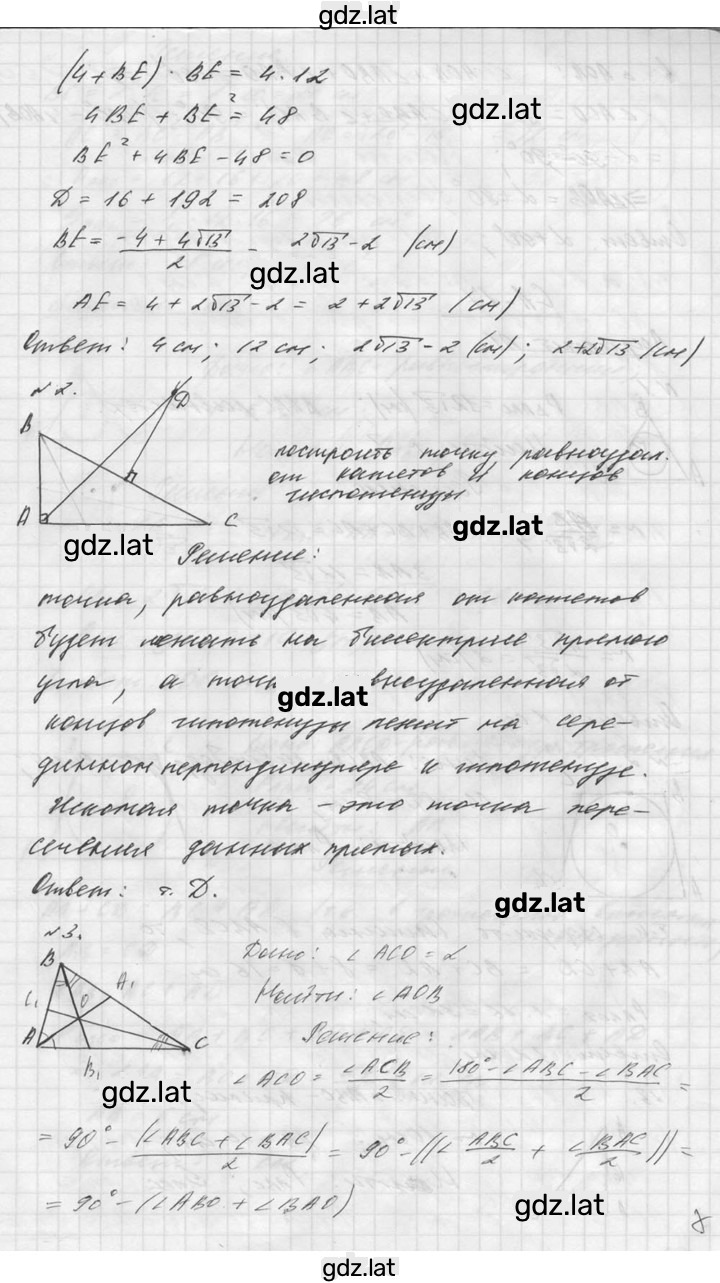 gdz.lat
(4+BE)·BE = 4·12
gdz.lat
4BE + BE² = 48
BE² + 4BE - 48 = 0
D = 16 + 192 = 208
BE = (-4 + 4√13)/2 = 2√13 - 2 (см)
gdz.lat
AE = 4 + 2√13 - 2 = 2 + 2√13 (см)
Ответ: 4 см; 12 см; 2√13 - 2 (см); 2+2√13 (см)
№2.
B
D
A
C
построить точку равноудал.
от катетов и концов
гипотенузы
gdz.lat
gdz.lat
Решение:
точка, равноудаленная от катетов
будет лежать на биссектрисе прямого
угла, а точ
gdz.lat
удаленная от
концов гипотенузы лежит на сере-
динном перпендикуляре к гипотенузе.
Искомая точка – это точка пере-
сечения данных прямых.
Ответ: т. D.
gdz.lat
№3.
B
A₁
C₁
O
A
B₁
C
gdz.lat
Дано: ∠ACO = α
Найти: ∠AOB
Решение:
∠ACO = ∠ACB/2 = (180° - ∠ABC - ∠BAC)/2 =
= 90° - (∠ABC + ∠BAC)/2 = 90° - ((∠ABC/2 + ∠BAC/2)) =
= 90° - (∠ABO + ∠BAO)
gdz.lat
gdz.lat